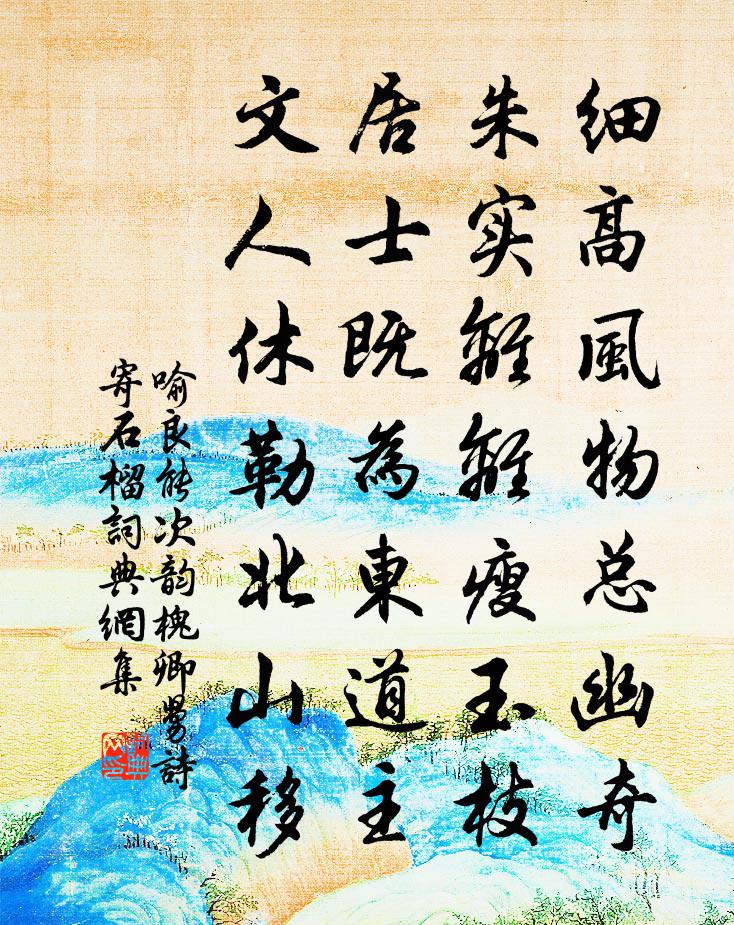 細高風物总幽奇
朱实離離瘦玉枝
居士既為東道主
文人休勒北山移
喻良能次韵槐卿舅詩
寄石榴詞典網集